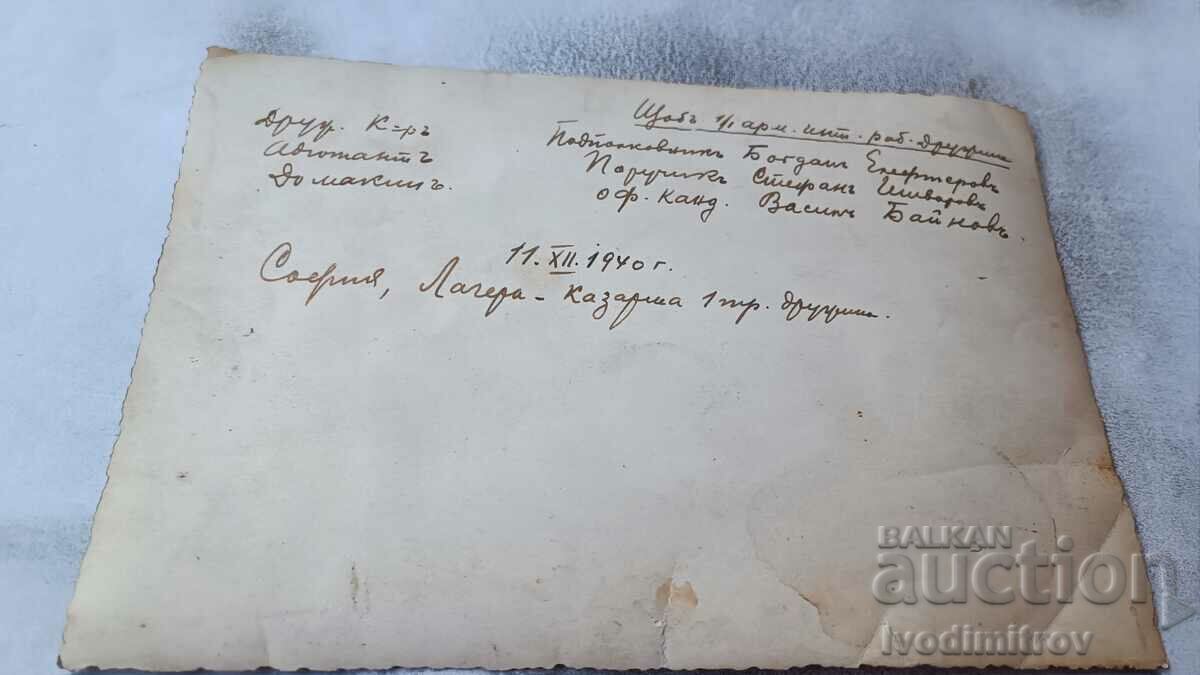 Щабъ 1/1 арм. инт. раб. дружина
Друж. К-ръ Подполковникъ Богданъ Елефтеровъ
Адютантъ Поручикъ Стефанъ
Домакинъ. оф. канд. Василъ Байновъ.
11.XII.1940 г.
София, Лагера - казарма 1 пр. дружина.
BALKAN
auction
Ivodimitrov